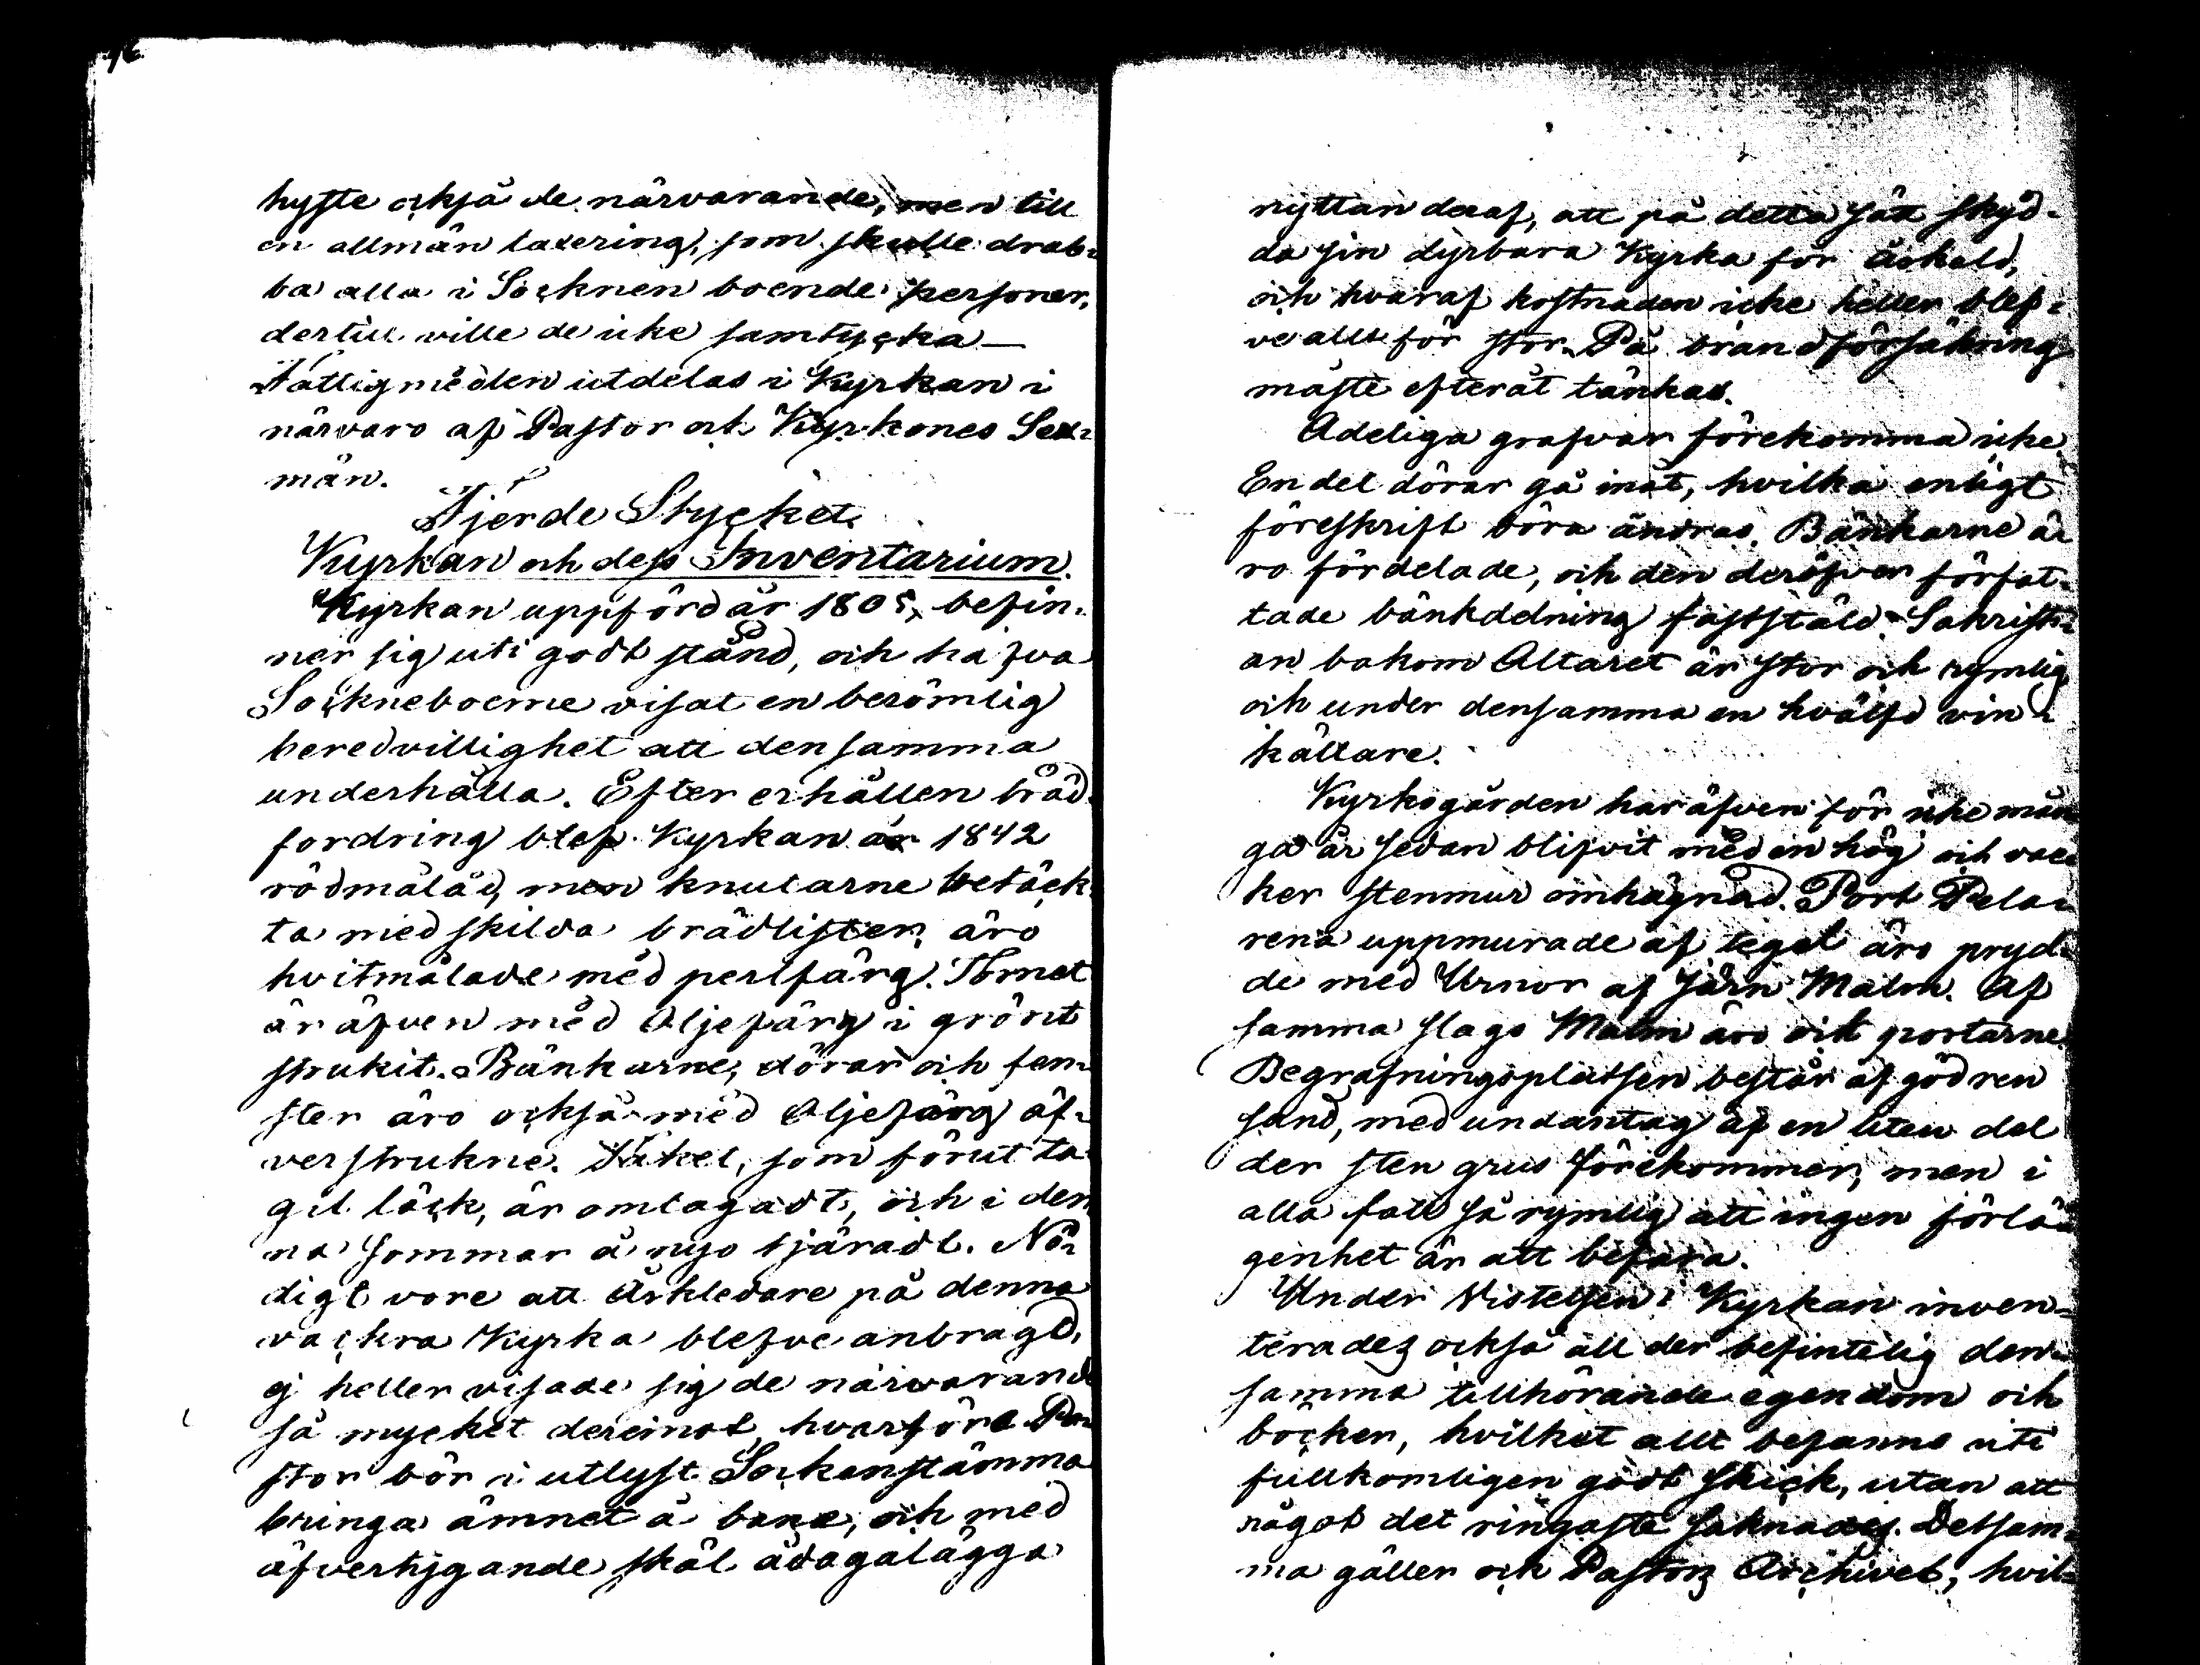 hyste också de närvarande, men till
en allmän taxering, som skulle drab-
ba alla i Socknen boende personer,
dertill ville de icke samtycka—
Fattigmedlen utdelas i Kyrkan i
närvaro af Pastor och Kyrkones Sex-
män.
Fjerde Stycket.
Kyrkan och dess Inventarium.
Kyrkan uppförd år 1805, befin-
ner sig uti godt stånd, och hafva
Sockneboerne visat en berömlig
beredvillighet att densamma
underhålla. Efter erhållen bräd-
fordring blef Kyrkan år 1842
rödmålad, men knutarne betäck-
ta med skilda brädlister, äro
hvitmålade med perlfärg. Tornet
är äfven med Oljefärg i grönt
strukit. Bänkarne, dörar och fen-
ster äro också med Oljefärg öf-
verstrukne. Taket, som förut ta-
git läck, är omlagadt, och i den-
na sommar å nyo tjäradt. Nö-
digt vore att Åskledare på denna
vackra Kyrka blefve anbragd,
ej heller visade sig de närvarande
så mycket deremot, hvarföre Pa-
stor bör i utlyst Sockenstämma
bringa ämnet å bane, och med
öfvertygande skäl ådagalägga
nyttan deraf, att på detta sätt skyd-
da sin dyrbara Kyrka för åskeld,
och hvaraf kostnaden icke heller blef-
ve allt för stor. På brandförsäkring
måste efteråt tänkas.
Adeliga grafvar förekomma icke.
En del dörar gå inåt, hvilka enligt
föreskrift böra ändras. Bänkarne ä-
ro fördelade, och den deröfver förfat-
tade bänkdelning fastställd. Sakristi-
an bakom Altaret är stor och rymlig
och under densamma en hvälfd vin-
källare.
Kyrkogården har äfven för icke mån-
ga år sedan blifvit med en hög och vac-
ker stenmur omhägnad. Port Pela-
rena uppmurade af tegel äro pryd-
de med Urnor af Järn Malm. Af
samma slags Malm äro ock portarne.
Begrafningsplatsen består af god ren
sand, med undantag af en liten del
der sten grus förekommer, men i
alla fall så rymlig att ingen förlä-
genhet är att befara.
Under Vistelsen i Kyrkan inven-
terades också all der befintelig den-
samma tillhörande egendom och
böcker, hvilket allt befanns uti
fullkomligen godt skick, utan att
något det ringaste saknades. Detsam-
ma gäller ock Pastors Archivet, hvil-